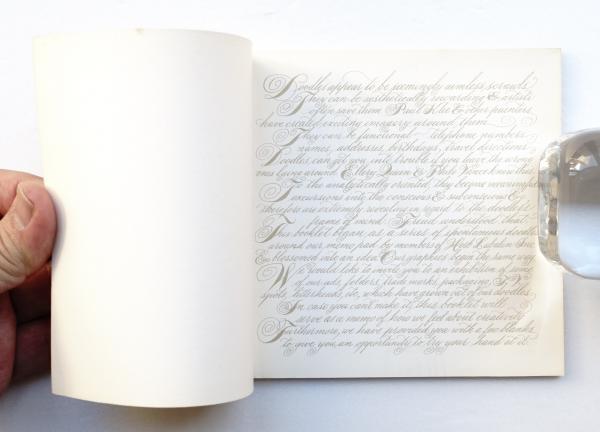 Doodles appear to be seemingly aimless scrawls.
They can be aesthetically rewarding & artists
often save them. Paul Klee & other painters
have created exciting imagery around them.
They can be functional telephone numbers,
names, addresses, birthdays, travel directions.
Doodles can get you into trouble if you leave the wrong
ones lying around. Ellery Queen & Philo Vance knew this.
To the analytically oriented, they become meaningful
excursions into the conscious & subconscious &
therefore are extremely revealing in regard to the doodler's
frame of mind. Freud understood that.
This booklet began as a series of spontaneous doodles
around our memo pad by members of Herb Lubalin Inc.
& blossomed into an idea. Our graphics began the same way.
We would like to invite you to an exhibition of some
of our ads, folders, trade marks, packaging, T.V.
spots, letterheads, etc., which have grown out of our doodles.
In case you can't make it, this booklet will
serve as a memo of how we feel about creativity.
Furthermore, we have provided you with a few blanks
to give you an opportunity to try your hand at it.